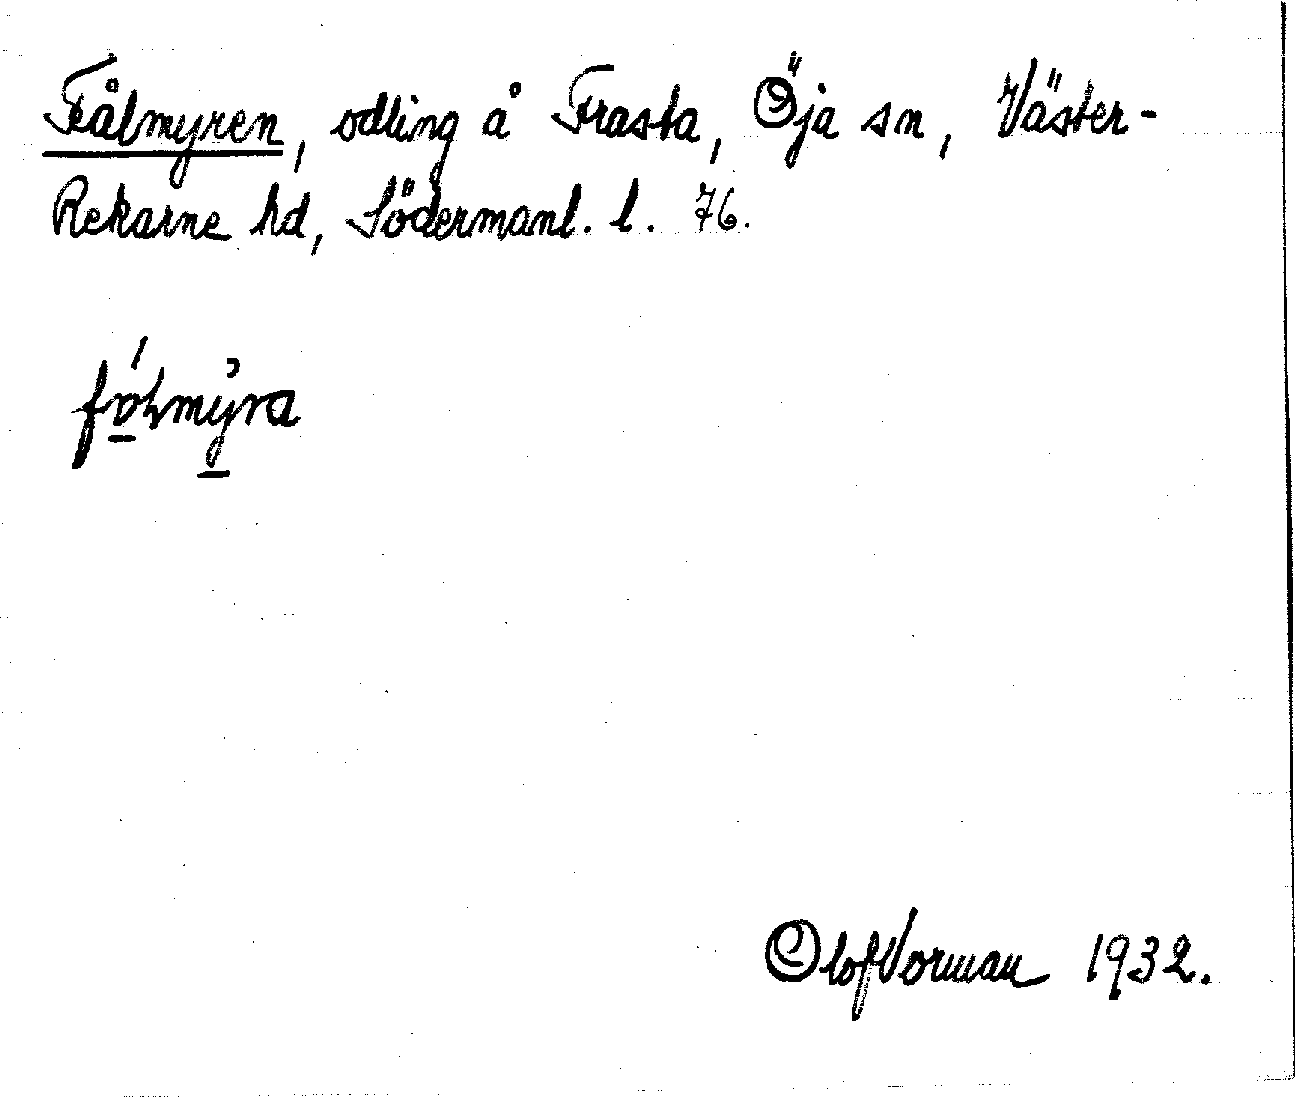 Fålmyren, odling å Frasta, Öja sn, Väster-
Rekarne hd, Södermanl. l. 76.
fólmỳra
Olof Vorman 1932.